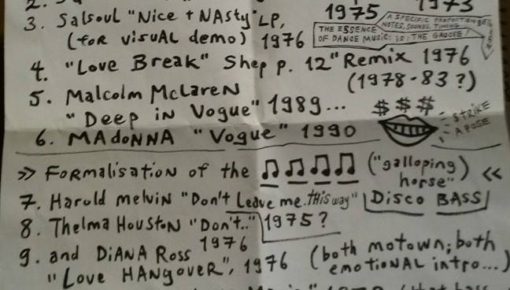 1975
1973
3. Salsoul "Nice + NAsty" LP,
(for visual demo) 1976
A SPECIFIC PROPORTION OF
NOTES, SOUNDS, TIMING
THE ESSENCE
OF DANCE MUSIC: IS: THE GROOVE!
4. "Love Break" Shep P. 12" Remix 1976
(1978-83?)
5. Malcolm McLaren
"Deep iN Vogue" 1989...
$ $ $
STRIKE
A POSE
6. MADONNA "Vogue" 1990
>> FORMALISATION of the ♫ ♫ ♫ ♫ ("galloping
horse") <<
7. Harold Melvin "Don't Leave me THis way"
Disco BASS
8. Thelma HousToN "Don't.."
1975?
1976
9. and DiANA Ross
"Love HANgover", 1976
(both motown; both
emotional intro...)